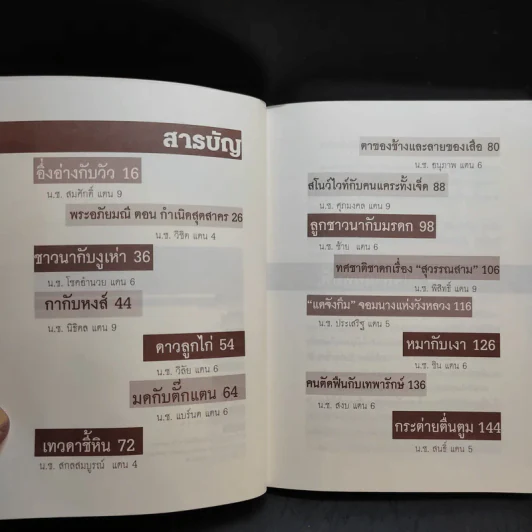 สารบัญ
อึ่งอ่างกับวัว 16
น.ช. สมศักดิ์ แดน 9
พระอภัยมณี ตอน กำเนิดสุดสาคร 26
น.ช. วิชิต แดน 4
ชาวนากับงูเห่า 36
น.ช. โชคอำนวย แดน 6
กากับหงส์ 44
น.ช. นิธิดล แดน 9
ดาวลูกไก่ 54
น.ช. วิลัย แดน 6
มดกับตั๊กแตน 64
น.ช. แบร์นด แดน 6
เทวดาขี้หิน 72
น.ช. สกลสมบูรณ์ แดน 4
ตาของช้างและลายของเสือ 80
น.ช. อนุภาพ แดน 6
สโนว์ไวท์กับคนแคระทั้งเจ็ด 88
น.ช. ศุภมงคล แดน 9
ลูกชาวนากับมรดก 98
น.ช. ช้าย แดน 6
ทศชาติชาดกเรื่อง "สุวรรณสาม" 106
น.ช. พิสิทธิ์ แดน 9
"แดจังกึม" จอมนางแห่งวังหลวง 116
น.ช. ประเสริฐ แดน 5
หมากับเงา 126
น.ช. ชิน แดน 6
คนตัดฟืนกับเทพารักษ์ 136
น.ช. สงบ แดน 6
กระต่ายตื่นตูม 144
น.ช. สนธิ์ แดน 5